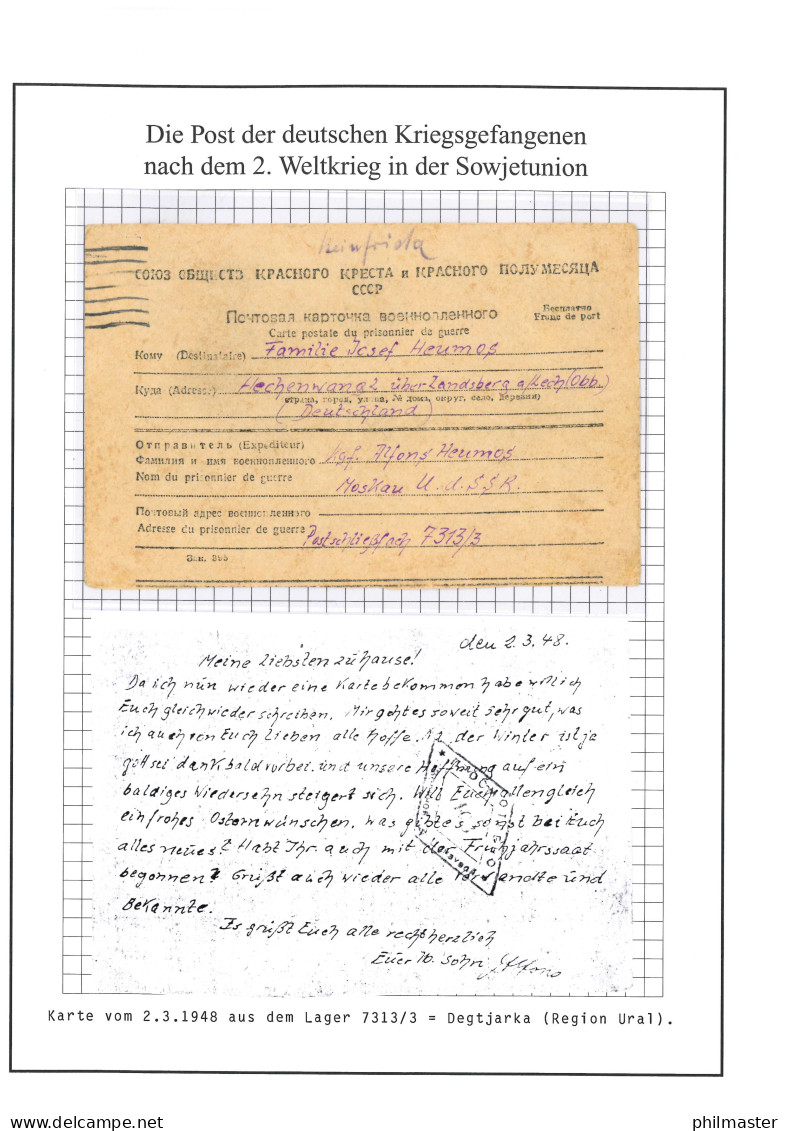 Die Post der deutschen Kriegsgefangenen
nach dem 2. Weltkrieg in der Sowjetunion
СОЮЗ ОБЩЕСТВ КРАСНОГО КРЕСТА и КРАСНОГО ПОЛУМЕСЯЦА
СССР
Почтовая карточка военнопленного
Бесплатно
Carte postale du prisonnier de guerre
Franc de port
Кому (Destinataire) Familie Josef Heumos
Куда (Adresse) Hechenwang 2 über Landsberg a/Lech (Obb.)
страна, город, улица, № дома, округ, село, деревня)
(Deutschland)
Отправитель (Expéditeur)
Фамилия и имя военнопленного Kgf. Alfons Heumos
Nom du prisonnier de guerre
Moskau U.d.S.S.R.
Почтовый адрес военнопленного
Adresse du prisonnier de guerre Postschließfach 7313/3
Зак.
den 2.3.48.
Meine Liebsten zuhause!
Da ich nun wieder eine Karte bekommen habe will ich
Euch gleich wieder schreiben. Mir geht es soweit sehr gut, was
ich auch von Euch Lieben alle hoffe. der Winter ist ja
gottsei dank bald vorbei. und unsere Hoffnung auf ein
baldiges Wiedersehn steigert sich. Will Euch allen gleich
ein frohes Ostern wünschen. was gibt es sonst bei Euch
alles neues? Habt Ihr auch mit der Frühjahrssaat
begonnen? Grüßt auch wieder alle Verwandte und
Bekannte.
Es grüßt Euch alle recht herzlich
Euer lb. Sohn Alfons
Karte vom 2.3.1948 aus dem Lager 7313/3 = Degtjarka (Region Ural).
philmaster